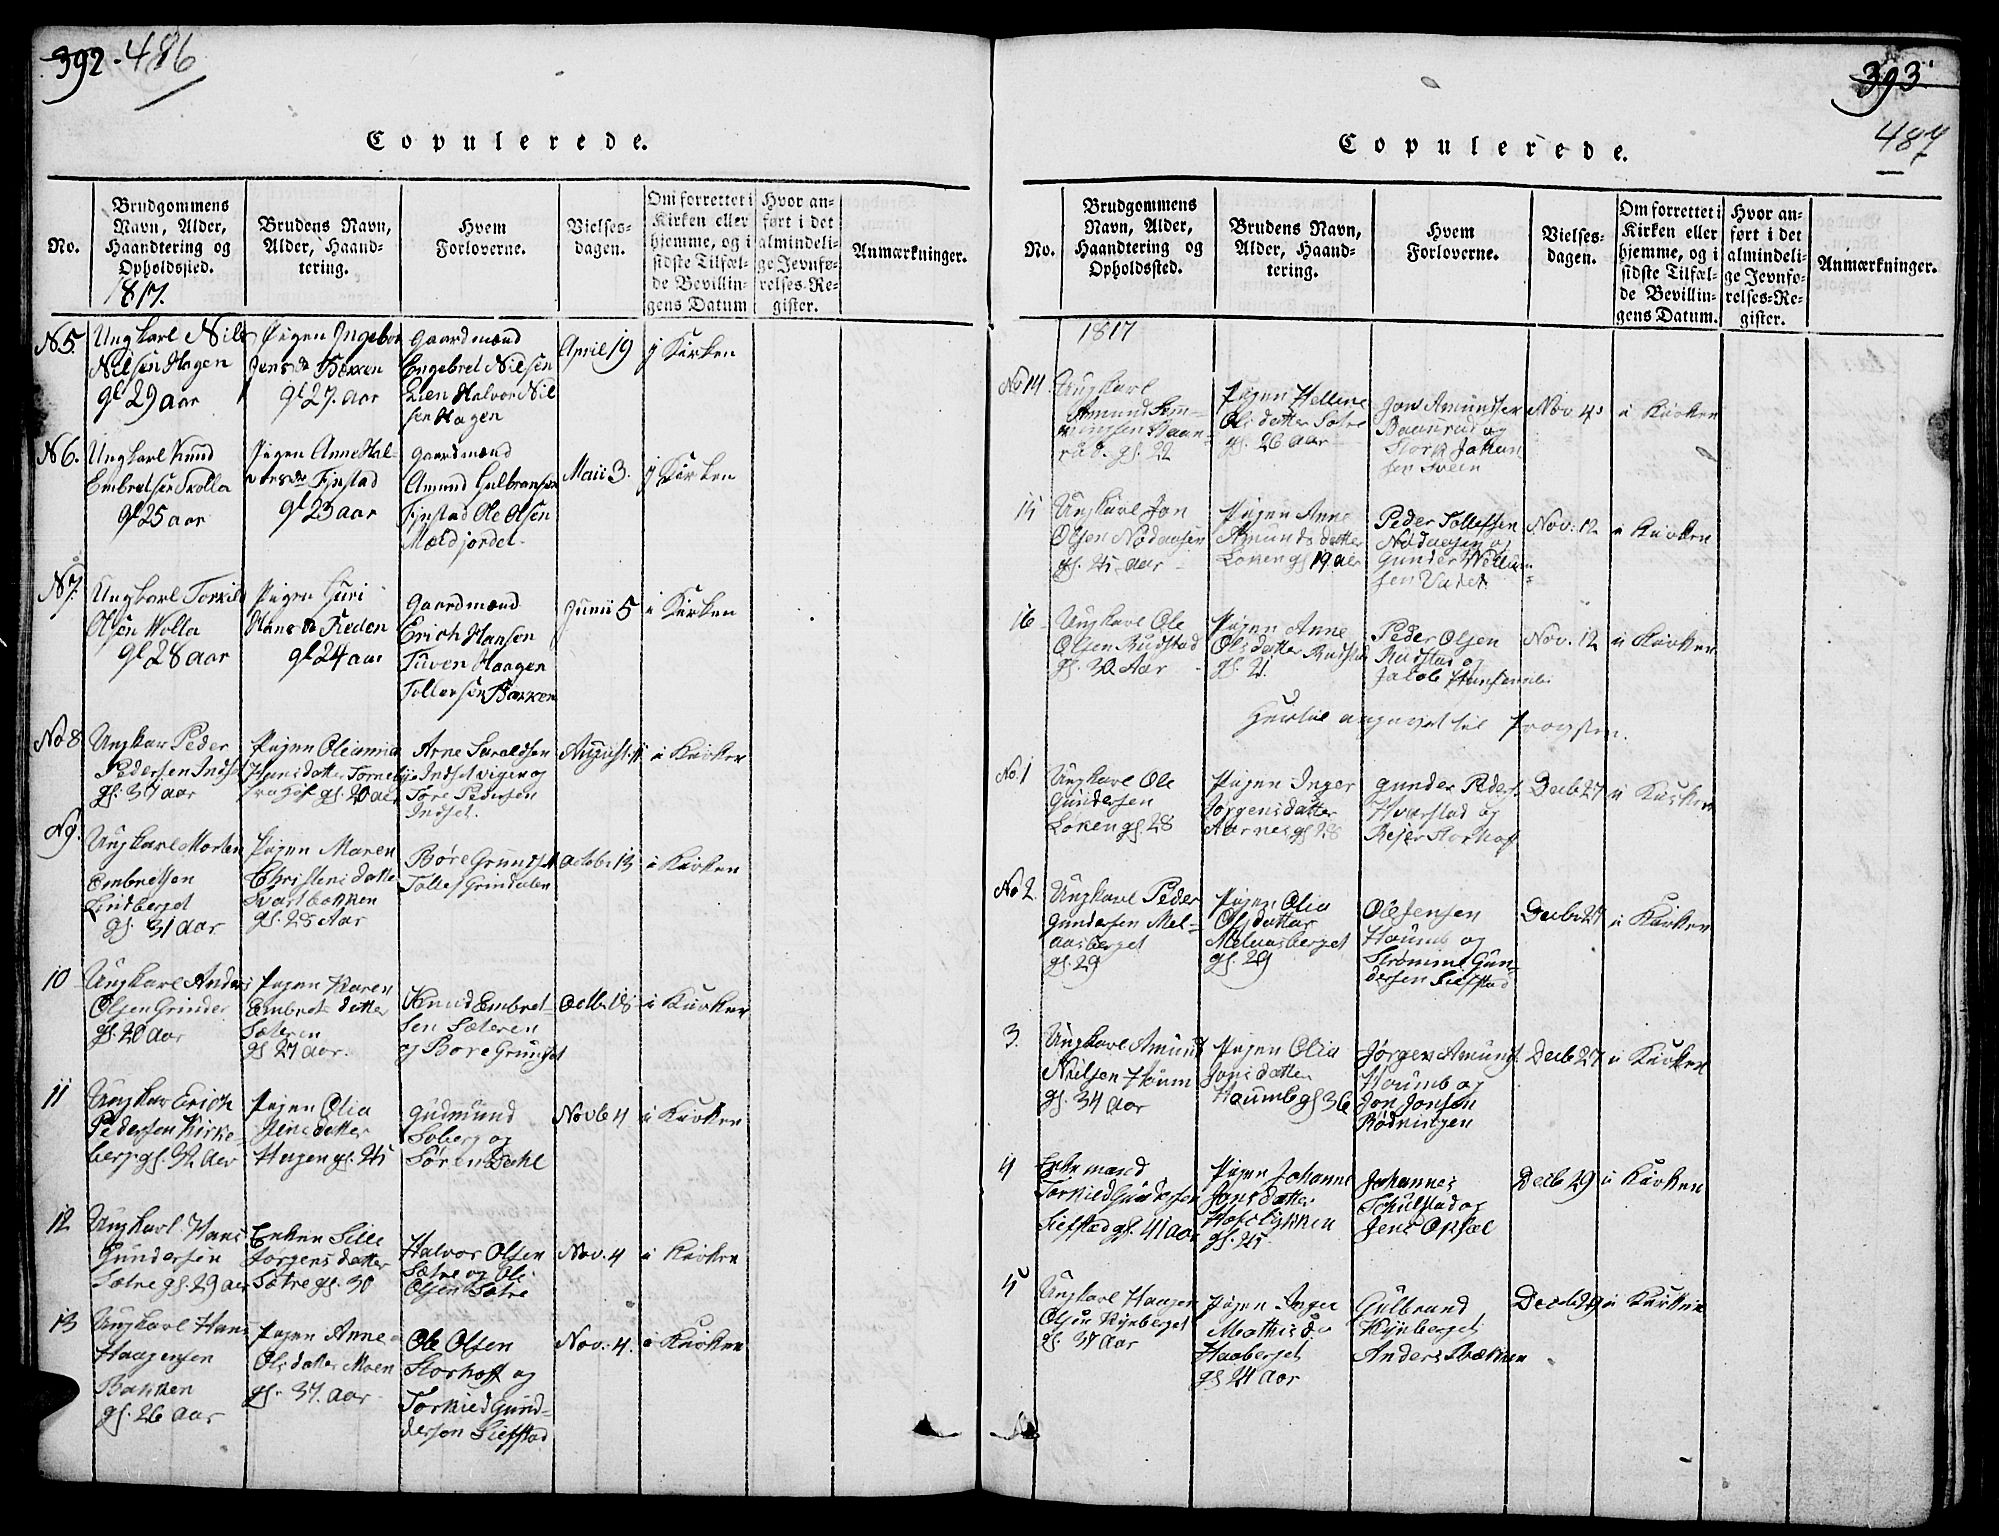 392. 486
Copulerede.
No.
Brudgommens
Navn, Alder,
Haandtering og
Opholdssted.
1817.
Brudens Navn,
Alder, Haand-
tering.
Hvem
Forloverne.
Vielses-
dagen.
Om forrettet i
Kirken eller
hjemme, og i
sidste Tilfæl-
de Bevillin-
gens Datum
Hvor an-
ført i det
almindeli-
ge Jevnfø-
relses-Re-
gister.
Anmærkninger.
N 5.
Ungkarl Nils
Nilsen Hagen
gl 29 aar
Pigen Ingebor
Jens dr Bakken
gl 27. aar
Gaardmænd
Engebret Nilsen
Lien Halvor Nil
sen Hagen
April 19
j Kirken
N 6.
Ungkarl Knud
Embretsen Trolla
gl 25 aar
Pigen Anne Hal-
vors dr Fjnstad
gl 23 aar
gaardmænd
Amund Gulbransen
Fjnstad Ole Olsen
Mældjordet.
Maii 3.
j Kirken
N 7.
Ungkarl Torkild
Olsen Wolla
gl 28 aar
Pigen Guri
Hans dr Reden
gl 24 aar
Gaardmænd
Erich Hansen
Tuven Haagen
Tollersen Bakken
Junii 5
i Kirken
No 8
Ungkar Peder
Pedersen Indset
gl. 37 aar
Pigen Oleanna
Hansdatter Torneby
gl. 20 aar
Arne Haraldsen
Indset vigen og
Tore Pedersen
Indset.
August
i Kirken
N 9.
Ungkarl Morten
Embretsen
Lindberget
gl. 31 aar
Pigen Maren
Christensdatter
Svartbakken
gl. 28 Aar
Børe Grundset
Tollef Grindalen
octobr 13
i Kirken
10
Ungkarl Anders
Olsen Grinder
gl. 20 aar
Pigen Karen
Embrets datter
Sæteren
gl 27 aar.
Knud Embret-
sen Sæteren
og Bore Grundset
Octb. 18
i Kirken
11
Ungkar Erich
Pedersen Kirke-
berg. gl. 32 aar
Pigen Olia
Jensdatter
Hagen gl. 25
Gudmund
Soberg og
Søren Dahl
Novb 4
i Kirken
12
Ungkarl Hans
Gundersen
Sætre gl. 29 aar
Enken Sille
Jørgens datter
Sætre gl. 30
Halvor Olsen
Sætre og Ole
Olsen Sætre
Nov. 4
i Kirken
13
Ungkarl Hans
Haagensen
Bakken
gl. 26 Aar
Pigen Anne
Olsdatter Moen
gl. 37. Aar
Ole Olsen
Storhoff og
Torkied Gund-
dersen Siefstad
Nov. 4.
i Kirken
393.
487
Copulerede.
No.
Brudgommens
Navn, Alder,
Haandtering og
Opholdssted.
Brudens Navn,
Alder, Haand-
tering.
Hvem
Forloverne.
Vielses-
dagen.
Om forrettet i
Kirken eller
hjemme, og i
sidste Tilfæl-
de Bevillin-
gens Datum.
Hvor an-
ført i det
almindeli-
ge Jevnfø-
relses-Re-
gister.
Anmærkninger.
1817
No 14
Ungkarl
Amund Sem-
mingsen Baan-
rud. gl. 22
Pigen Hellene
Olsdatter Sætre
gl. 26 aar
Jon Amundsen
Baanrud og
Stork Johan
sen Sveen
Nov. 4
i Kirken
15
Ungkarl Jon
Olsen Nodaasen
gl. 25 aar
Pigen Anne
Amunds datter
Loken gl 19 aar
Peder Tollefsen
Nodaasen og
Gunder Nielen
sen Vadet
Nov. 12
i Kirken
16
Ungkarl Ole
Olsen Rudstad
gl. 30 Aar
Pigen Anne
Olsdatter Rudstad
gl. 21.
Peder Olsen
Rudstad og
Jacob
Nov. 12
i Kirken
Hertil angivet til Provsten.
No. 1
Ungkarl Ole
Gundersen
Loken gl. 28
Pigen Inger
Jørgensdatter
Aarnes gl. 28
Gunder Peders.
Hverstad og
Rejer Storhoff
Decb 27
i Kirken
No 2
Ungkarl Peder
Gundersen Mel-
aasberget
gl. 29
Pigen Olia
Olsdatter
Melaasberget
gl. 29
Ole Jensen
Houmb og
Strømme Gun-
dersen Siefstad
Decb 27
i Kirken
3.
Ungkarl Amund
Nielsen Houm
gl. 34 Aar
Pigen Olia
Jonsdatter
Haumb gl 36
Jørgen Amunds.
Houmb og
Jon Jonsen
Rødningen
Decb 27
i Kirken
4
Enkemand
Torkied Gundersen
Siefstad gl. 41 aar
Pigen Johanne
Jansdatter
Hofslykken
gl. 25
Johannes
Schulstad og
Jens Opsal
Decb 29
i Kirken
5
Ungkarl Haagen
Olsen Kynberget
gl. 37 Aar
Pigen Inger
Mathis dr
Haaberget
gl 24 Aar
Gulbrand
Kynberget
Anders Bækken
Decb 29
i Kirken